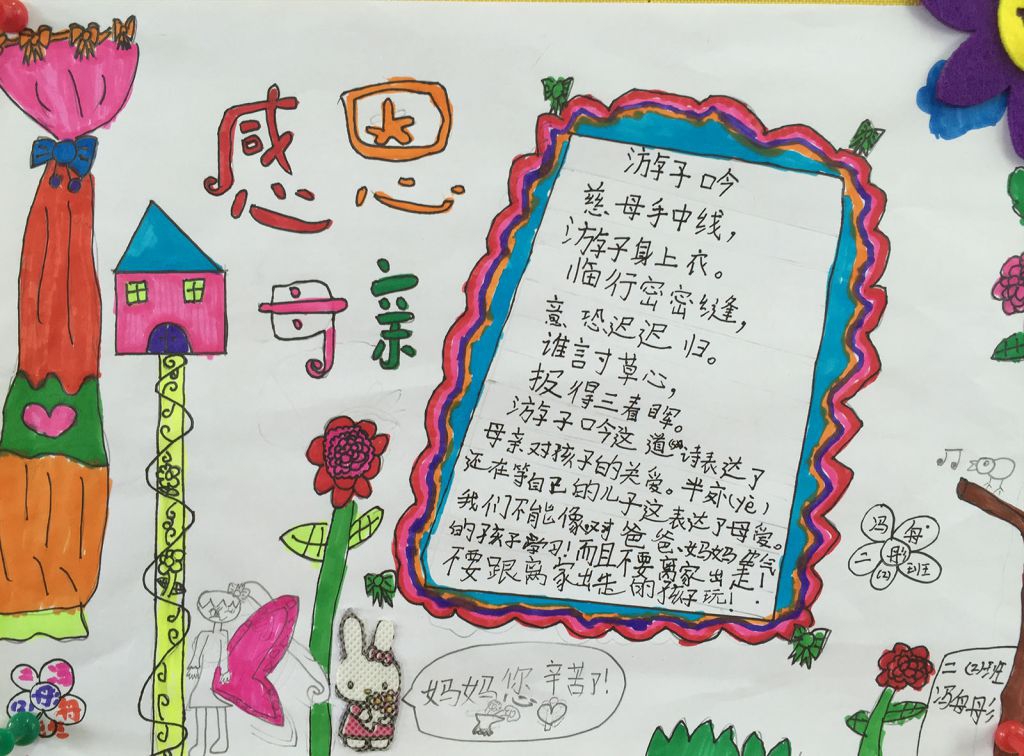 感恩
母亲
游子吟
慈母手中线，
游子身上衣。
临行密密缝，
意恐迟迟归。
谁討草心，
报得三春晖。
游子吟这道诗表达了
母亲对孩子的关爱。半夜(yè)
还在等自己的儿子这表达了母爱。
我们不能像对爸爸、妈妈生气
的孩子学习！而且不要离家出走！
不要跟离家出走的孩子玩！
妈妈您辛苦了！
二(2)班